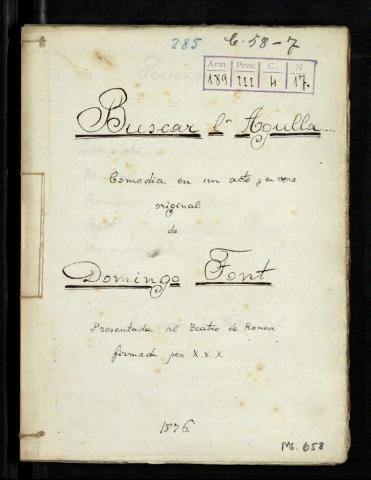 285 C-58-7
Arm. Prest. C. N
189 III 4 17.
Buscar l' Agulla...
Comedia en un acte y en vers
original
de
Domingo Font
Presentada al Teatro de Romea
firmada per X.X.X.
1876.
Ms. 658